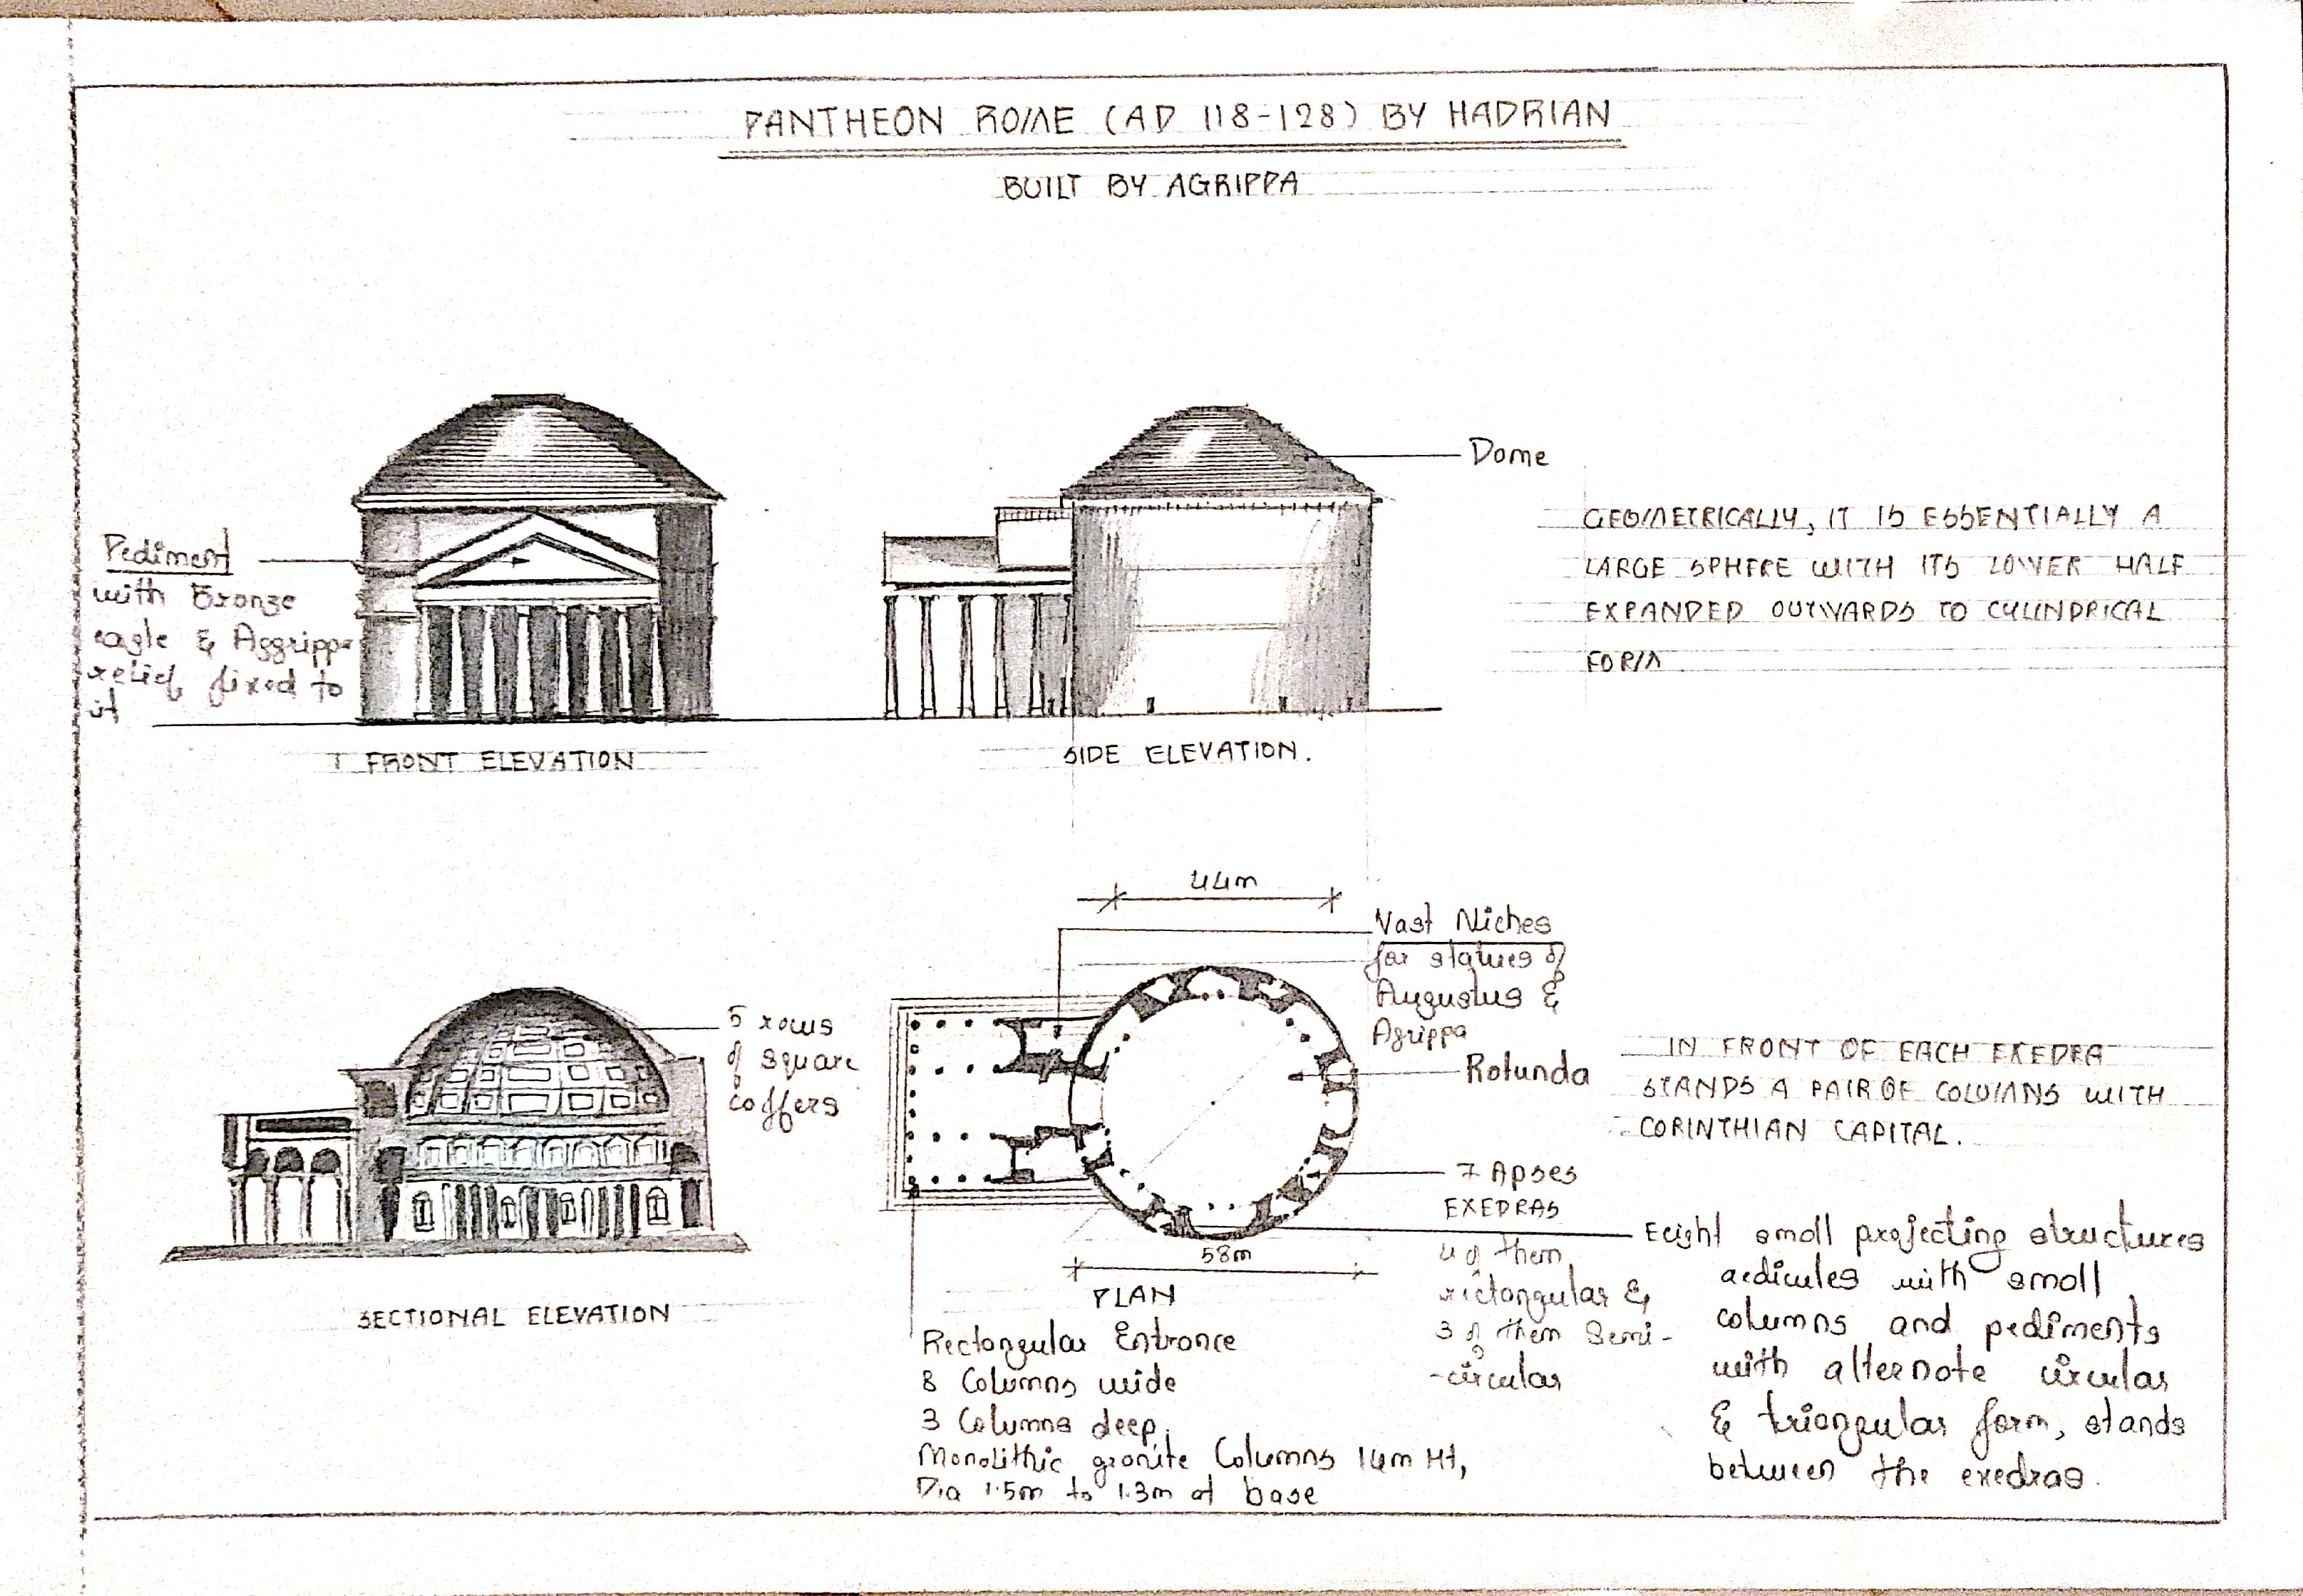 PANTHEON ROME (AD 118-128) BY HADRIAN
BUILT BY AGRIPPA
Pediment
with Bronze
eagle & Aggrippa
relief fixed to
it
Dome
GEOMETRICALLY, IT IS ESSENTIALLY A
LARGE SPHERE WITH ITS LOWER HALF
EXPANDED OUTWARDS TO CYLINDRICAL
FORM
FRONT ELEVATION
SIDE ELEVATION.
44m
Vast Niches
for statues of
Augustus &
Agrippa
Rotunda
5 rows
of square
coffers
IN FRONT OF EACH EXEDRA
STANDS A PAIR OF COLUMNS WITH
CORINTHIAN CAPITAL.
7 Apses
EXEDRAS
4 of them
rectangular &
3 of them Semi-
-circular
58m
PLAN
SECTIONAL ELEVATION
Rectangular Entrance
8 Columns wide
3 Columns deep.
Monolithic granite Columns 14m Ht,
Dia 1.5m to 1.3m at base
Eeight small projecting structures
aedicules with small
columns and pediments
with alternate circular
& triangular form, stands
between the exedras.